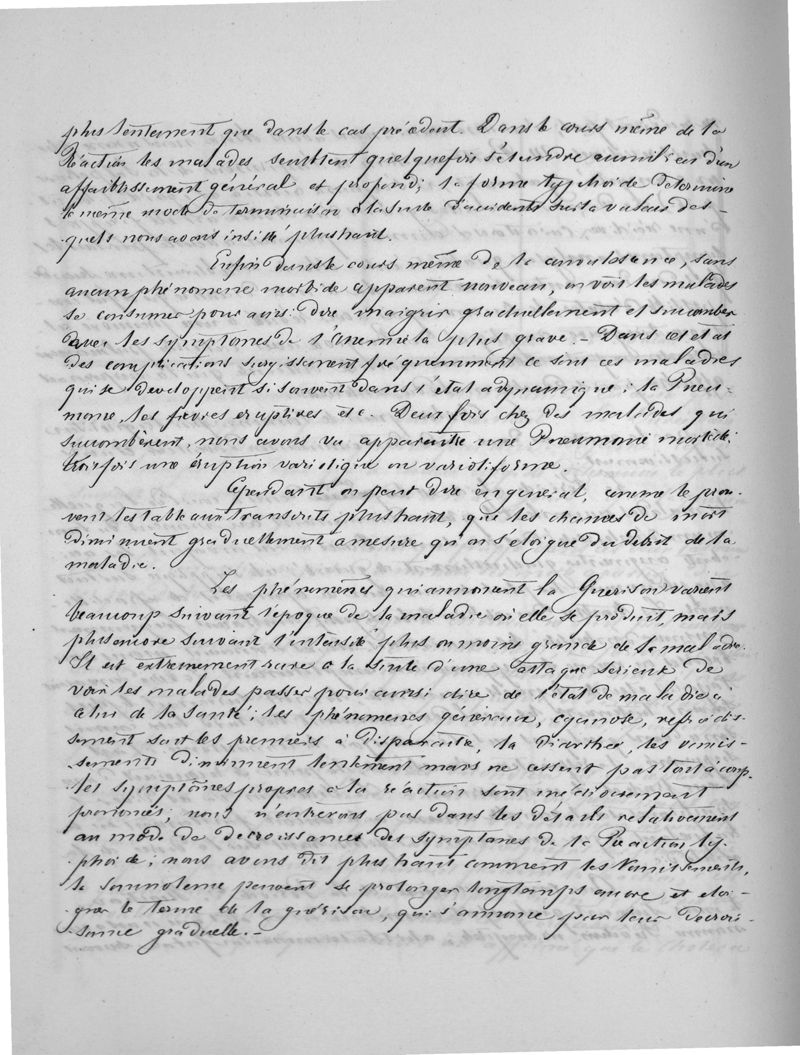 plus lentement que dans le cas précédent. Dans le cours même de la
Réaction les malades semblent quelquefois s'éteindre au milieu d'un
affaiblissement général et profond; la forme typhoïde détermine
le même mode de terminaison à la suite d'accidents sur la valeur des-
quels nous avons insisté plus haut.
Enfin dans le cours même de la convalescence, sans
aucun phénomène morbide apparent nouveau, on voit les malades
se consumer pour ainsi dire maigrir graduellement et succomber
avec les symptômes de l'Anémie la plus grave. - Dans cet état
des complications surgissent fréquemment ce sont ces maladies
qui se développent si souvent dans l'état adynamique; la Pneu-
monie, les fièvres éruptives etc. Deux fois chez des malades qui
succombèrent, nous avons vu apparaître une Pneumonie mortelle;
trois fois une éruption variolique ou varioliforme.
Cependant on peut dire en général, comme le prou-
vent les tableaux transcrits plus haut, que les chances de mort
diminuent graduellement à mesure qu'on s'éloigne du début de la
maladie.
Les phénomènes qui annoncent la Guérison varient
beaucoup suivant l'époque de la maladie où elle se produit, mais
plus encore suivant l'intensité plus ou moins grande de la maladie.
Il est extrêmement rare à la suite d'une attaque sérieuse de
voir les malades passer pour ainsi dire de l'état de maladie à
celui de la santé; les phénomènes généraux, cyanose, refroidis-
sement sont les premiers à disparaître, la diarrhée, les vomis-
sements diminuent lentement mais ne cessent pas tout à coup,
les symptômes propres à la réaction sont médiocrement
prononcés; nous n'entrerons pas dans les détails relativement
au mode de décroissance des symptômes de la Réaction ty-
phoïde; nous avons dit plus haut comment les Vomissements,
la Somnolence peuvent se prolonger longtemps encore et éloi-
gner le terme de la guérison, qui s'annonce par leur décrois-
sance graduelle. -